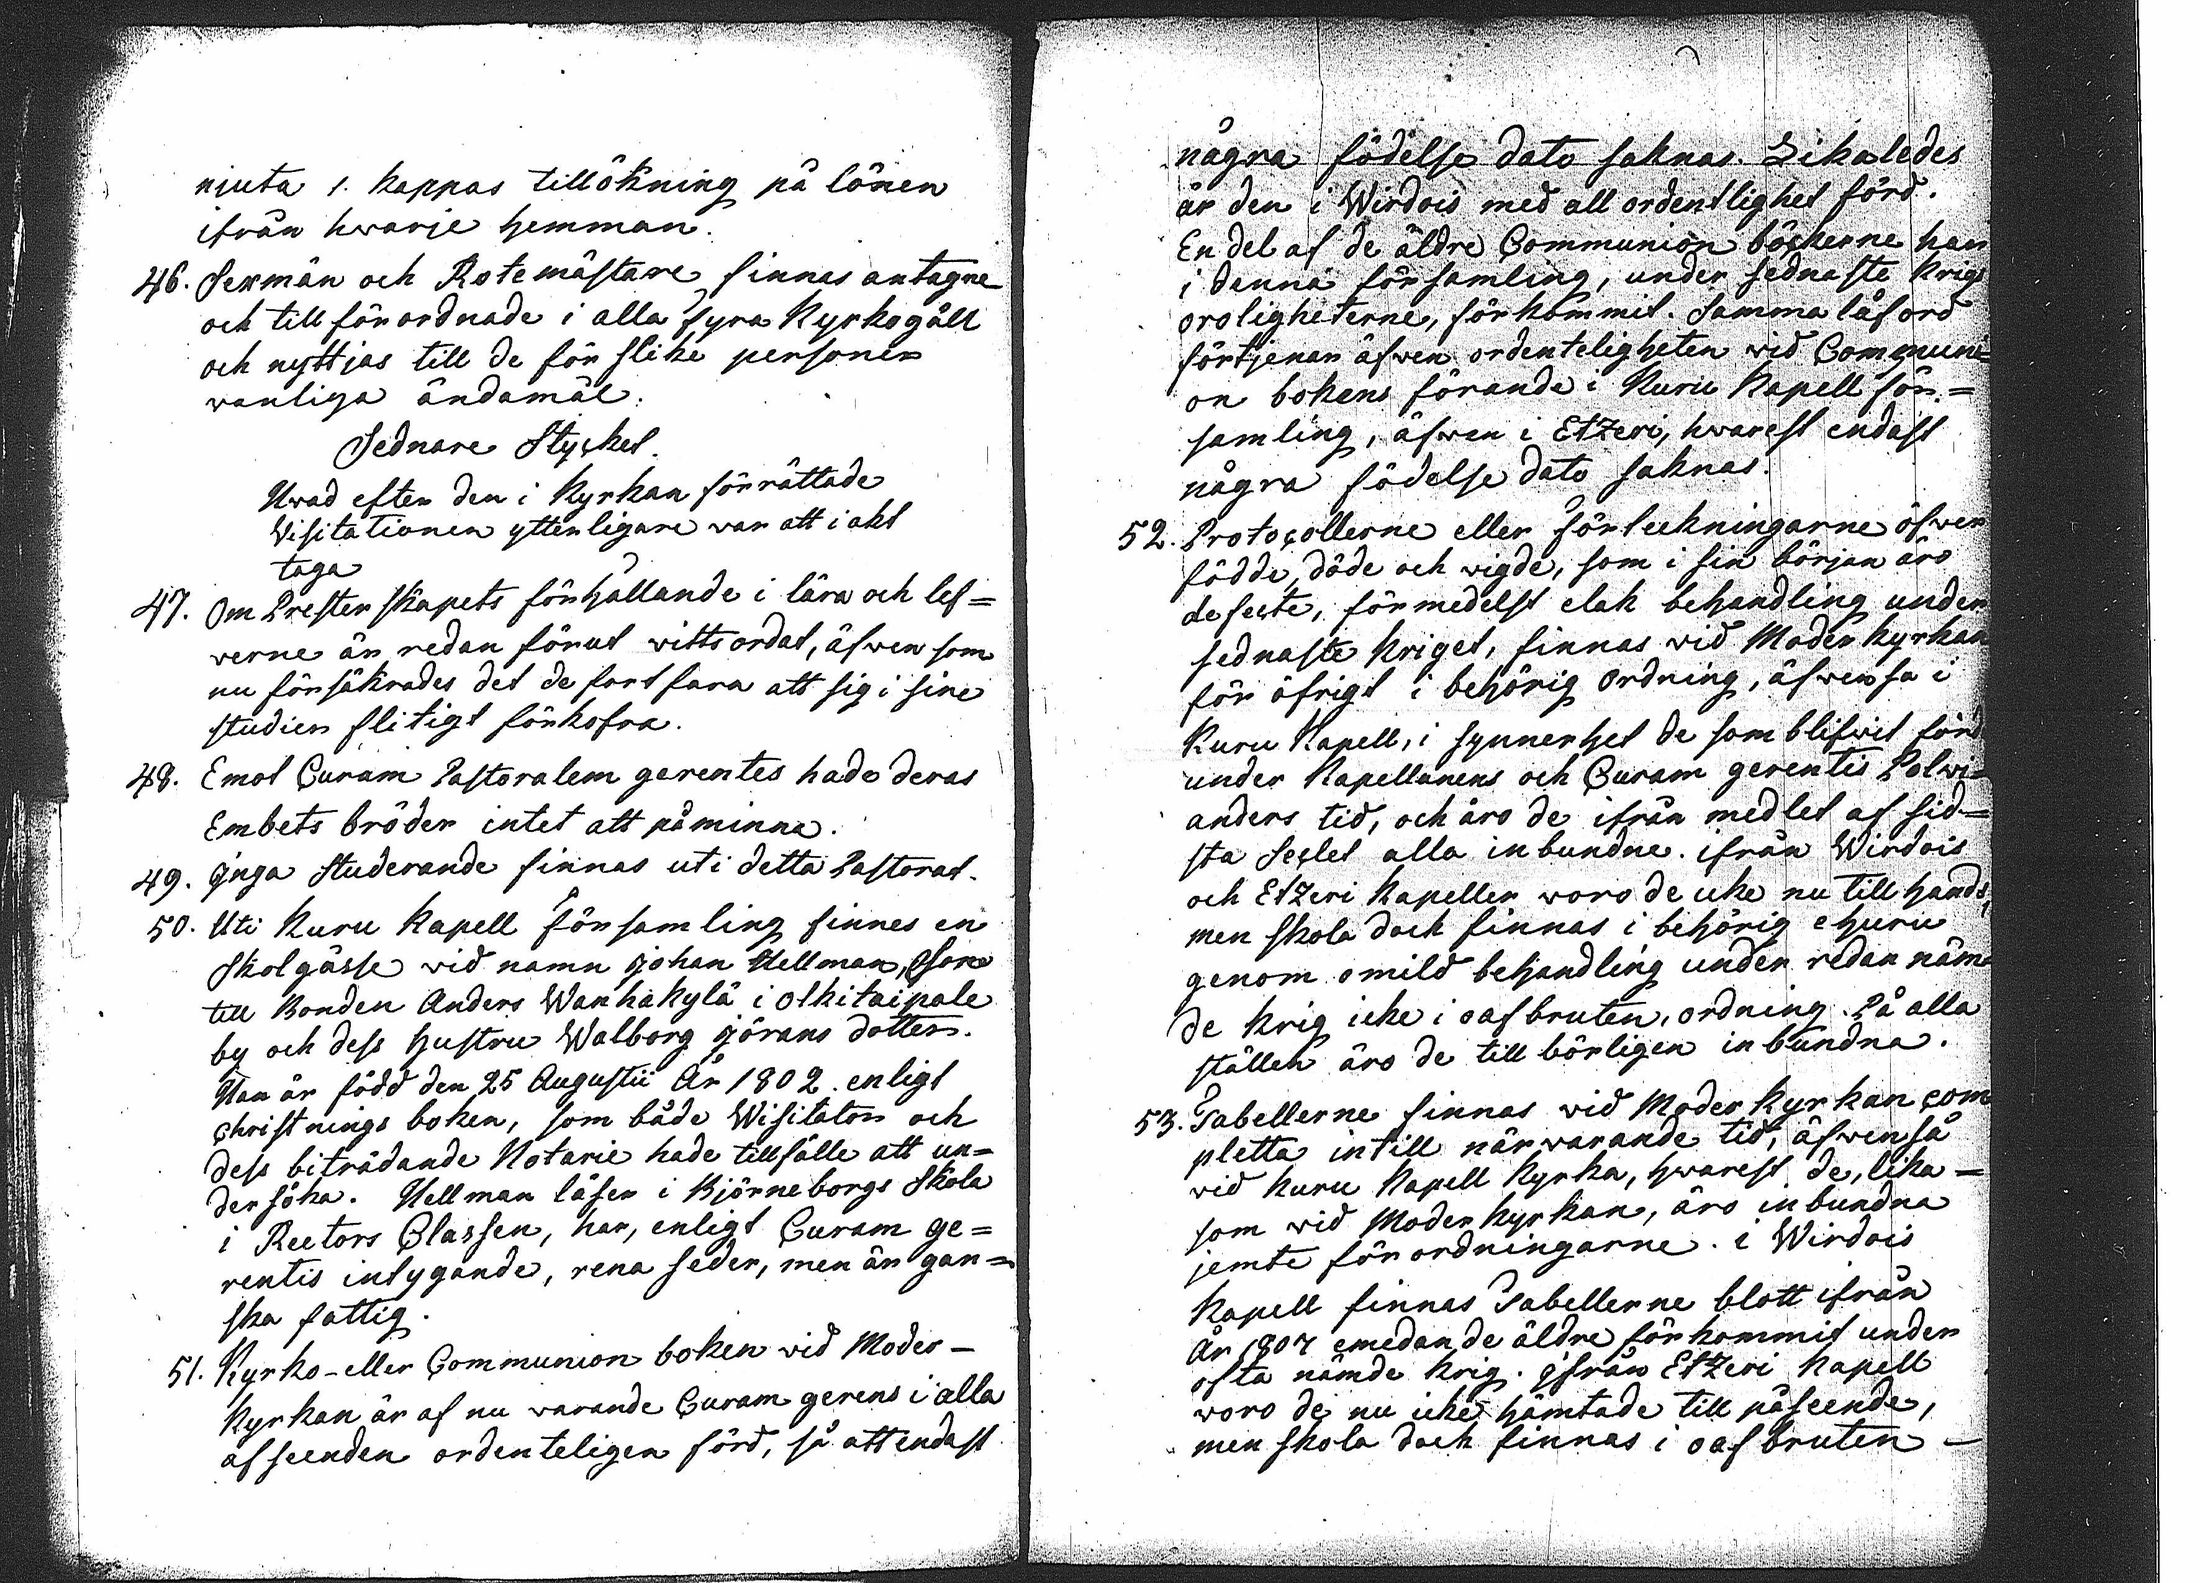 njuta 1. kappas tillökning på lönen
ifrån hwarje hemman.
46. Sexmän och Rotemästare finnas antagne
och till förordnade i alla fyra Kyrkogäll
och nyttjas till de för slike personer
vanliga ändamål.
Sednare Stycket.
Hvad efter den i Kyrkan förrättade
Visitationen ytterligare var att i akt
taga
47. Om Presterskapets förhållande i lära och lef=
verne är redan förut vittsordat, äfwen som
nu försäkrades det de fortfara att sig i sine
studier flitigt förkofra.
48. Emot Curam Pastoralem gerentes hade deras
Embets bröder intet att påminna.
49. Inga Studerande finnas uti detta Pastorat.
50. Uti Kuru Kapell Församling finnes en
Skolgåsse vid namn Johan Hellman, Son
till Bonden Anders Wanhakylä i Olkitaipale
by och dess hustru Walborg Jörans dotter.
Han är född den 25 Augustii År 1802. enligt
christnings boken, som både Wisitator och
dess biträdande Notarie hade tillfälle att un=
dersöka. Hellman läser i Björneborgs Skola
i Rectors Classen, har, enligt Curam ge=
rentis intygande, rena seder, men är gan=
ska fattig.
51. Kyrko-eller Communion boken vid Moder-
kyrkan är af nu varande Curam gerens i alla
afseenden ordenteligen förd, så att endast
några födelse dato saknas. Likaledes
är den i Wirdois med all ordentlighet förd.
En del af de äldre Communion böckerne har
i denna församling, under sednaste Krigs
oroligheterne, förkommit. Samma låford
förtjenar äfwen ordenteligheten vid Communi=
on bokens förande i Kuru Kapell för=
samling, äfwen i Etzeri, hvarest endast
några födelse dato saknas.
52. Protocollerne eller förteckningarne öfwer
födde, döde och vigde, som i sin början äro
defecte, förmedelst elak behandling under
sednaste kriget, finnas vid Moderkyrkan
för öfrigt i behörig Ordning, äfwensa i
Kuru Kapell, i synnerhet de som blifvit förd
under Kapellanens och Curam gerentis Polvi=
anders tid, och äro de ifrån medlet af sid=
sta Seclet alla inbundne. ifrån Wirdois
och Etzeri Kapeller voro de icke nu till hands,
men skola dock finnas i behörig ehuru
genom omild behandling under redan näm=
de krig icke i oafbruten, ordning. På alla
ställen äro de till börligen inbundna.
53. Tabellerne finnas vid Moderkyrkan com
pletta intill närvarande tid, äfwen så
vid Kuru Kapell Kyrka, hvarest de, lika=
som vid Moderkyrkan, äro inbundna
jemte förordningarne. i Wirdois
Kapell finnas Tabellerne blott ifrån
År 1807 emedan de äldre förkommit under
ofta nämde krig. Ifrån Etzeri Kapell
voro de nu icke hämtade till påseende,
men skola dock finnas i oafbruten -